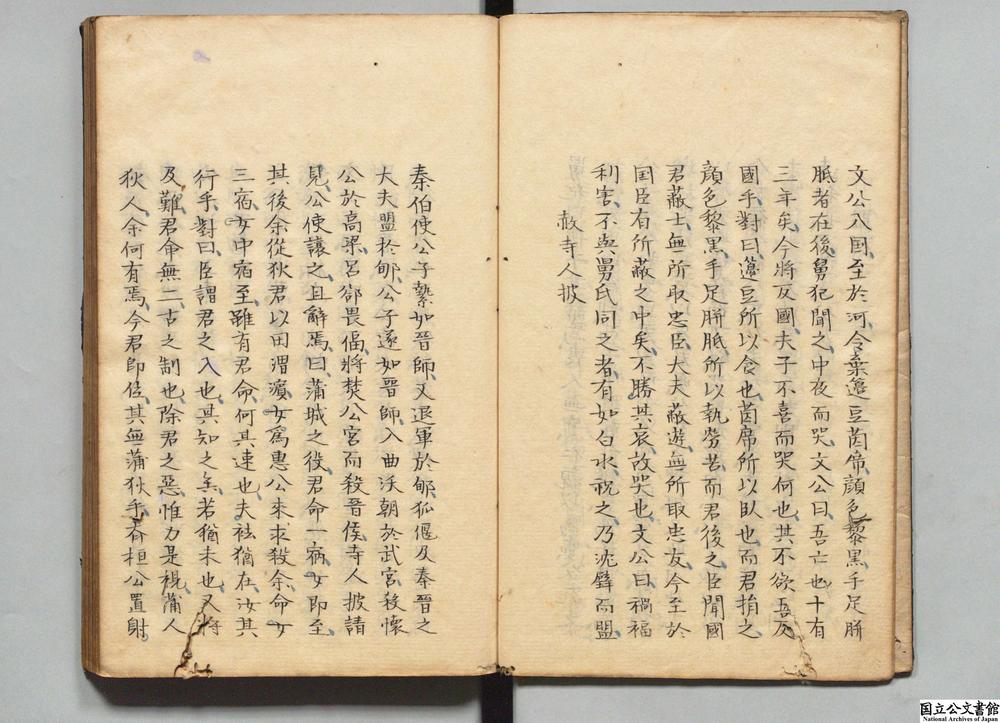 文公入国至於河令棄籩豆茵席顔色黎黒手足胼
胝者在後舅犯聞之中夜而哭文公曰吾亡也十有
三年矣今將反國夫子不喜而哭何也其不欲吾反
國乎對曰籩豆所以食也茵席所以臥也而君捐之
顔色黎黒手足胼胝所以執勞苦而君後之臣聞國
君蔽士無所取忠臣大夫蔽遊無所取忠友今至於
国臣有所蔽之中矣不勝其哀故哭也文公曰禍福
利害不與舅氏同之者有如白水祝之乃沈璧而盟
赦寺人披
秦伯使公子縶如晉師又退軍於郇狐偃及秦晉之
大夫盟於郇公子遂如晉師入曲沃朝於武宮殺懷
公於高梁呂郤畏偪將焚公宮而殺晉侯寺人披請
見公使讓之且辭焉曰蒲城之役君命一宿女即至
其後余從狄君以田渭濱女爲惠公來求殺余命女
三宿女中宿至雖有君命何其速也夫袪猶在汝其
行乎對曰臣謂君之入也其知之矣若猶未也又將
及難君命無二古之制也除君之惡惟力是視蒲人
狄人余何有焉今君即位其無蒲狄乎齊桓公置射
国立公文書館
National Archives of Japan